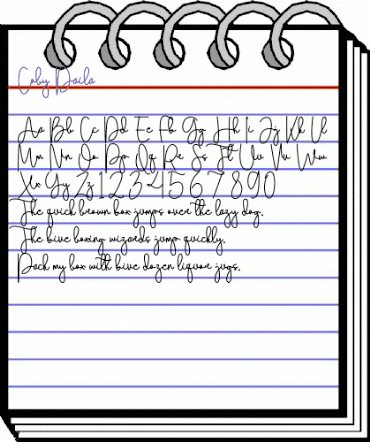 Coby Daila
Aa Bb Cc Dd Ee Ff Gg Hh Ii Jj Kk Ll
Mm Nn Oo Pp Qq Rr Ss Tt Uu Vv Ww
Xx Yy Zz 1 2 3 4 5 6 7 8 9 0
The quick brown fox jumps over the lazy dog.
The five boxing wizards jump quickly.
Pack my box with five dozen liquor jugs.